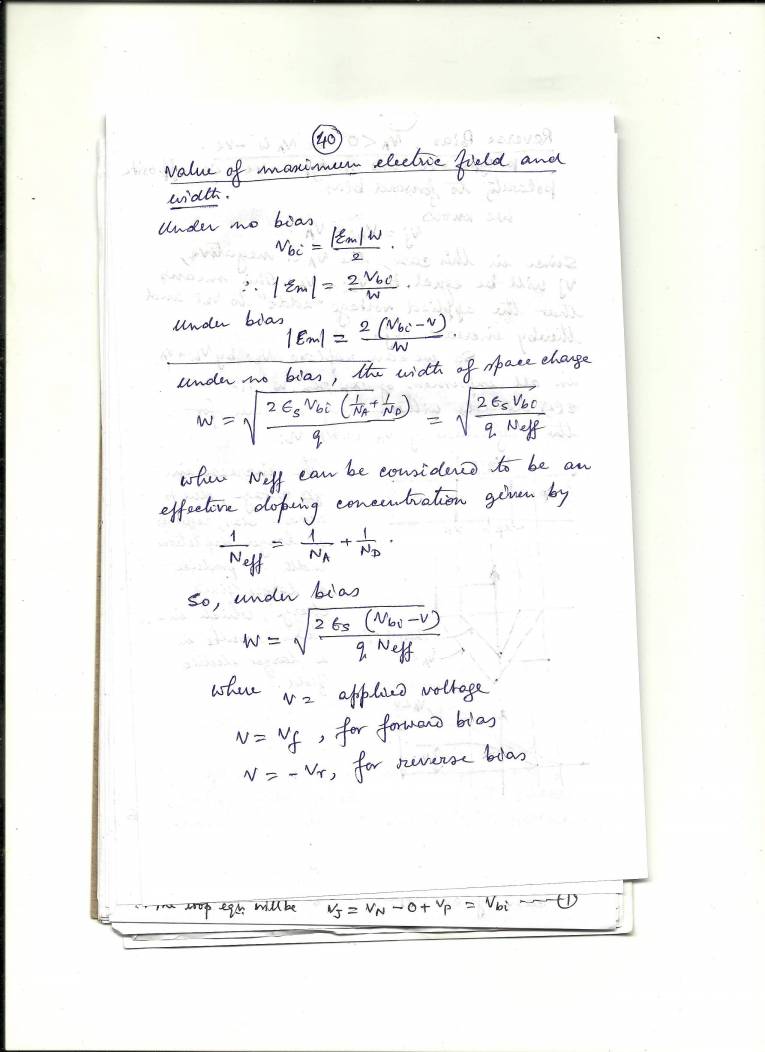 40
Value of maximum electric field and
width.
Under no bias
V_bi = |Em| W / 2 .
∴ |Em| = 2 V_bi / W .
Under bias
|Em| = 2 (V_bi - V) / W .
under no bias, the width of space charge
W = √(2 ϵ_s V_bi (1/N_A + 1/N_D) / q) = √(2 ϵ_s V_bi / q Neff)
where Neff can be considered to be an
effective doping concentration given by
1/Neff = 1/N_A + 1/N_D .
So, under bias
W = √(2 ϵ_s (V_bi - V) / q Neff)
where V = applied voltage
V = V_f , for forward bias
V = - V_r, for reverse bias
the loop eqn. will be V_J = V_N - 0 + V_P = V_bi --- (1)